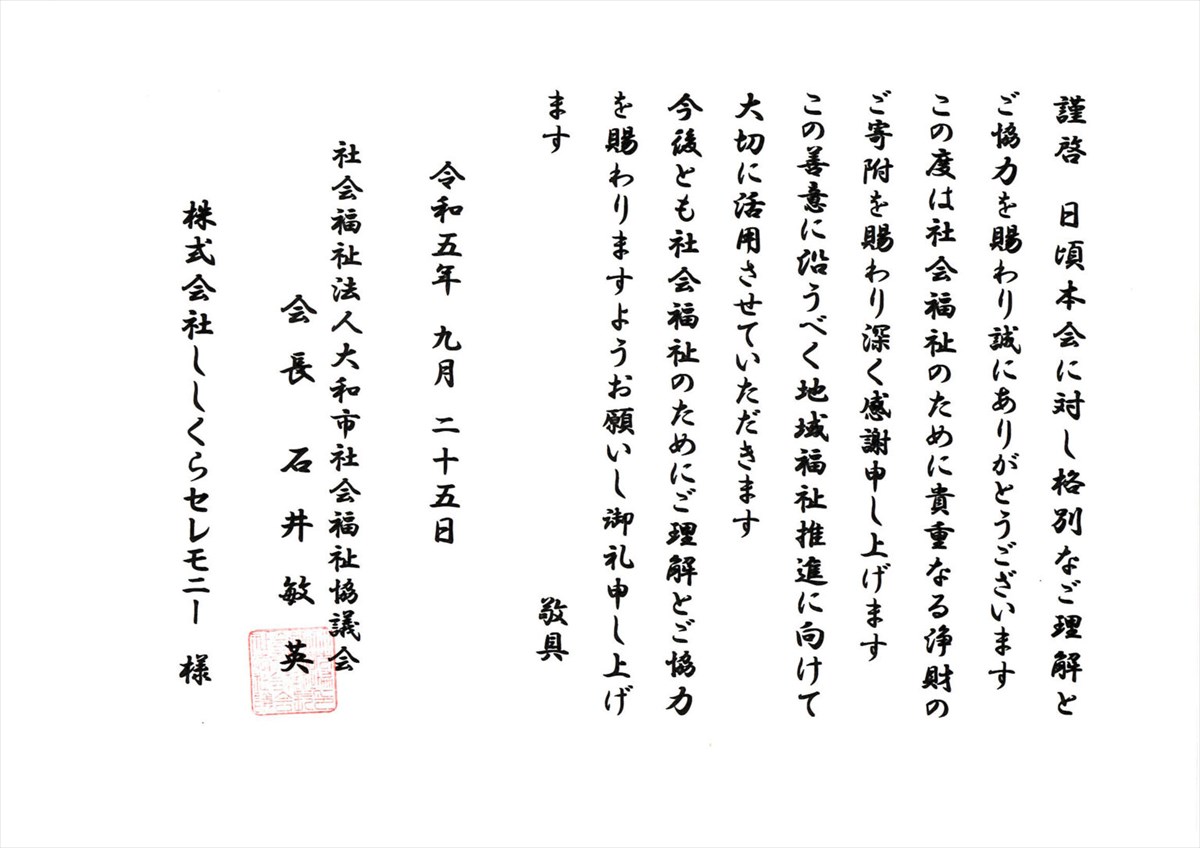 謹啓　日頃本会に対し格別なご理解と
ご協力を賜わり誠にありがとうございます
この度は社会福祉のために貴重なる浄財の
ご寄附を賜わり深く感謝申し上げます
この善意に沿うべく地域福祉推進に向けて
大切に活用させていただきます
今後とも社会福祉のためにご理解とご協力
を賜わりますようお願いし御礼申し上げ
ます　敬具
令和五年　九月　二十五日
社会福祉法人大和市社会福祉協議会
会長　石井敏英
株式会社ししくらセレモニー　様